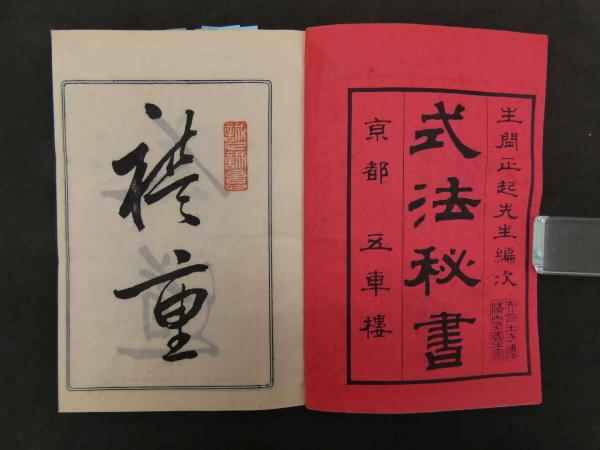 生間正起先生編次
式法秘書
京都 五車樓
禮重